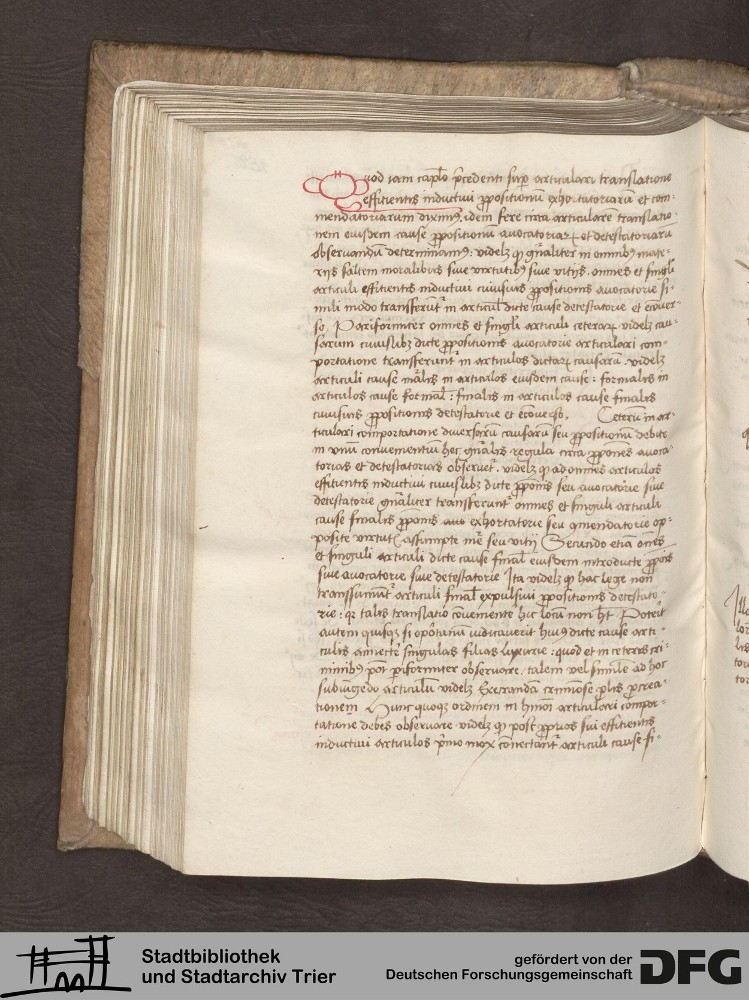 Quod iam caplo precedenti sup articulari translatione
efficientis inductiui ppositionu exhortatoriaru et com-
mendatoriarum diximus, idem fere circa articulare translatio-
nem eiusdem cause ppositionu auocatoriar et detestatoriaru
obseruandu determinamus: videlz q gnaliter in omnibus mate-
rijs saltem moralibus siue virtutibus siue vitijs. omnes et singli
articuli efficientis inductiui cuiusuis ppositionis auocatorie si-
mili modo transferunt in articul dicte cause detestatorie et econuer-
so. Pariformiter omnes et singli articuli ceterar videlz cau-
sarum cuiuslibz dicte ppositionis auocatorie articulari com-
portatione transferunt in articulos dictar causaru. videlz
articuli cause malis in articulos eiusdem cause: formalis in
articulos cause formal: finalis in articulos cause finalis
cuiusuis ppositionis detestatorie et econuerso. Ceteru in ar-
ticulari comportatione diuersaru causaru seu ppositionu debite
in vnu conuenientiu hec gnalis regula circa pposiones auoca-
torias et detestatorias obseruet. videlz q ad omnes articulos
efficientis inductiui cuiuslibz dicte pponis seu auocatorie siue
detestatorie gnaliter transferunt omnes et singuli articuli
cause finalis pponis exhortatorie seu commendatorie op-
posite virtut assumpte me seu vitij Secundo etia oms
et singuli articuli dicte cause final eiusdem introducte pponis
siue auocatorie siue detestatorie Ita videlz q hac lege non
transsumunt articuli final expulsiui ppositionis detestato-
rie: qr talis translatio conueniente hic locu non ht. Poterit
autem quisqz si oportunu iudicauerit huius dicte cause arti-
culis annecte singulas filias luxurie: quod et in ceteris cri-
minibus pot pariformiter obseruare. talem vel simile ad hoc
subiungedo articulu videlz Execranda criminose plis pcrea-
tionem Hunc quoqz ordinem in hmoi articulari compor-
tatione debes obseruare. videlz q post pprios sui efficientis
inductiui articulos primo mox connectant articuli cause fi-
Stadtbibliothek
und Stadtarchiv Trier
gefördert von der
Deutschen Forschungsgemeinschaft
DFG